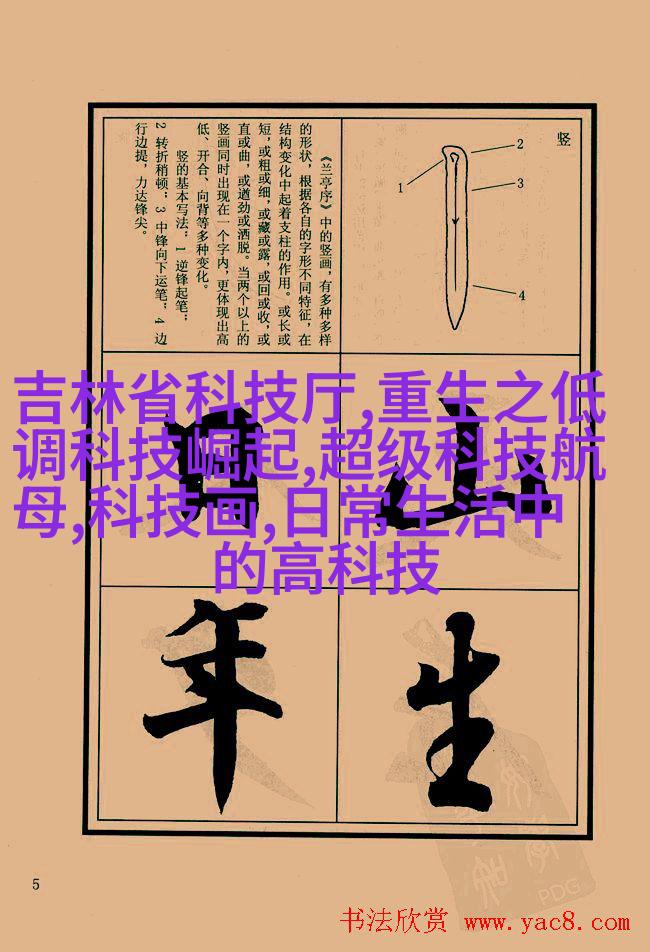 竖
1
2
3
4
《兰亭序》中的竖画，有多种多样
的形状，根据各自的字形不同特征，在
结构变化中起着支柱的作用。或长或
短，或粗或细，或藏或露，或回或收，或
直或曲，或遒劲或洒脱。当两个以上的
竖画同时出现在一个字内，更体现出高
低、开合、向背等多种变化。
竖的基本写法：1 逆锋起笔；
2 转折稍顿；3 中锋向下运笔；4 边
行边提，力达锋尖。
吉林省科技厅,重生之低
调科技崛起,超级科技航
母,科技画,日常生活中
的高科技
山
年
生
5
PDG
书法欣赏 www.yac8.com